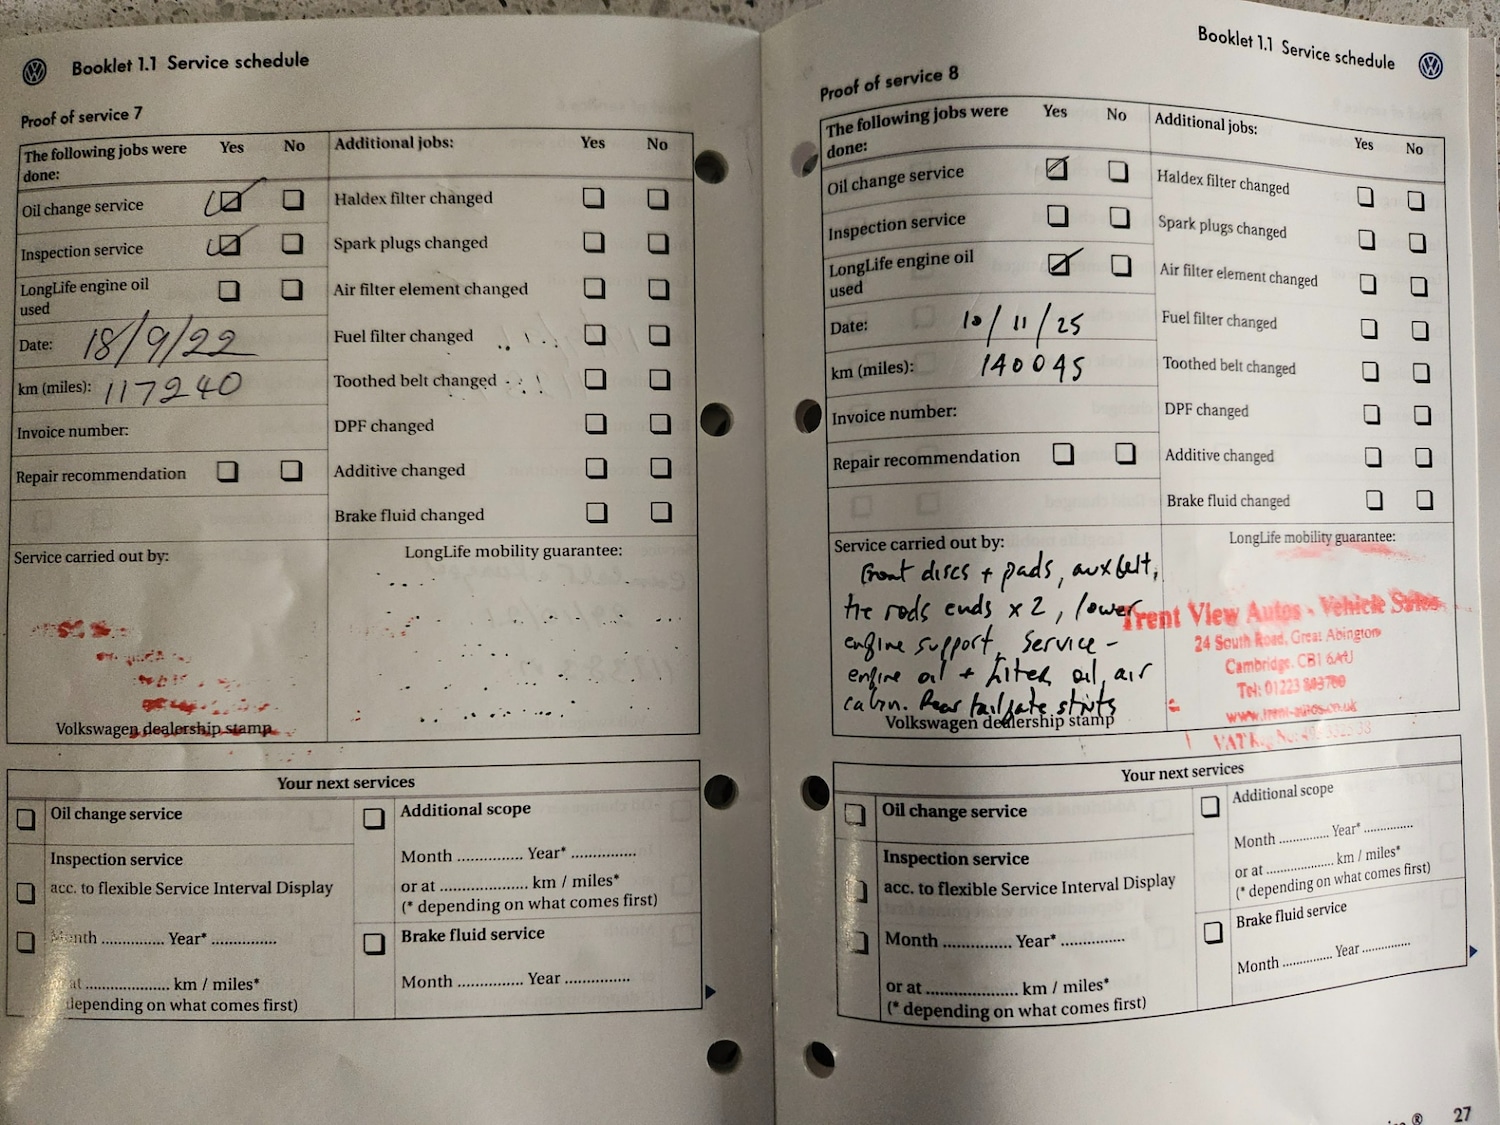 Booklet 1.1 Service schedule
Proof of service 7
The following jobs were done: Yes No
Oil change service
Inspection service
LongLife engine oil used
Date: 18/9/22
km (miles): 117240
Invoice number:
Repair recommendation
Additional jobs: Yes No
Haldex filter changed
Spark plugs changed
Air filter element changed
Fuel filter changed
Toothed belt changed
DPF changed
Additive changed
Brake fluid changed
Service carried out by:
Volkswagen dealership stamp
LongLife mobility guarantee:
Your next services
Oil change service
Inspection service
acc. to flexible Service Interval Display
Month ............... Year* ...............
at .................... km / miles*
depending on what comes first)
Additional scope
Month ............... Year* ...............
or at .................... km / miles*
(* depending on what comes first)
Brake fluid service
Month ............... Year ...............
Booklet 1.1 Service schedule
Proof of service 8
The following jobs were done: Yes No
Oil change service
Inspection service
LongLife engine oil used
Date: 10/11/25
km (miles): 140045
Invoice number:
Repair recommendation
Additional jobs: Yes No
Haldex filter changed
Spark plugs changed
Air filter element changed
Fuel filter changed
Toothed belt changed
DPF changed
Additive changed
Brake fluid changed
Service carried out by:
Front discs + pads, aux belt,
tie rods ends x 2, lower
engine support, Service -
engine oil + filter oil, air
cabin. Rear tailgate struts
Volkswagen dealership stamp
LongLife mobility guarantee:
Trent View Autos - Vehicle Sales
24 South Road, Great Abington
Cambridge. CB1 6AU
Tel: 01223
www.trent-autos.co.uk
Your next services
Oil change service
Inspection service
acc. to flexible Service Interval Display
Month ............... Year* ...............
or at .................... km / miles*
(* depending on what comes first)
Additional scope
Month ............... Year* ...............
or at .................... km / miles*
(* depending on what comes first)
Brake fluid service
Month ............... Year ...............
27